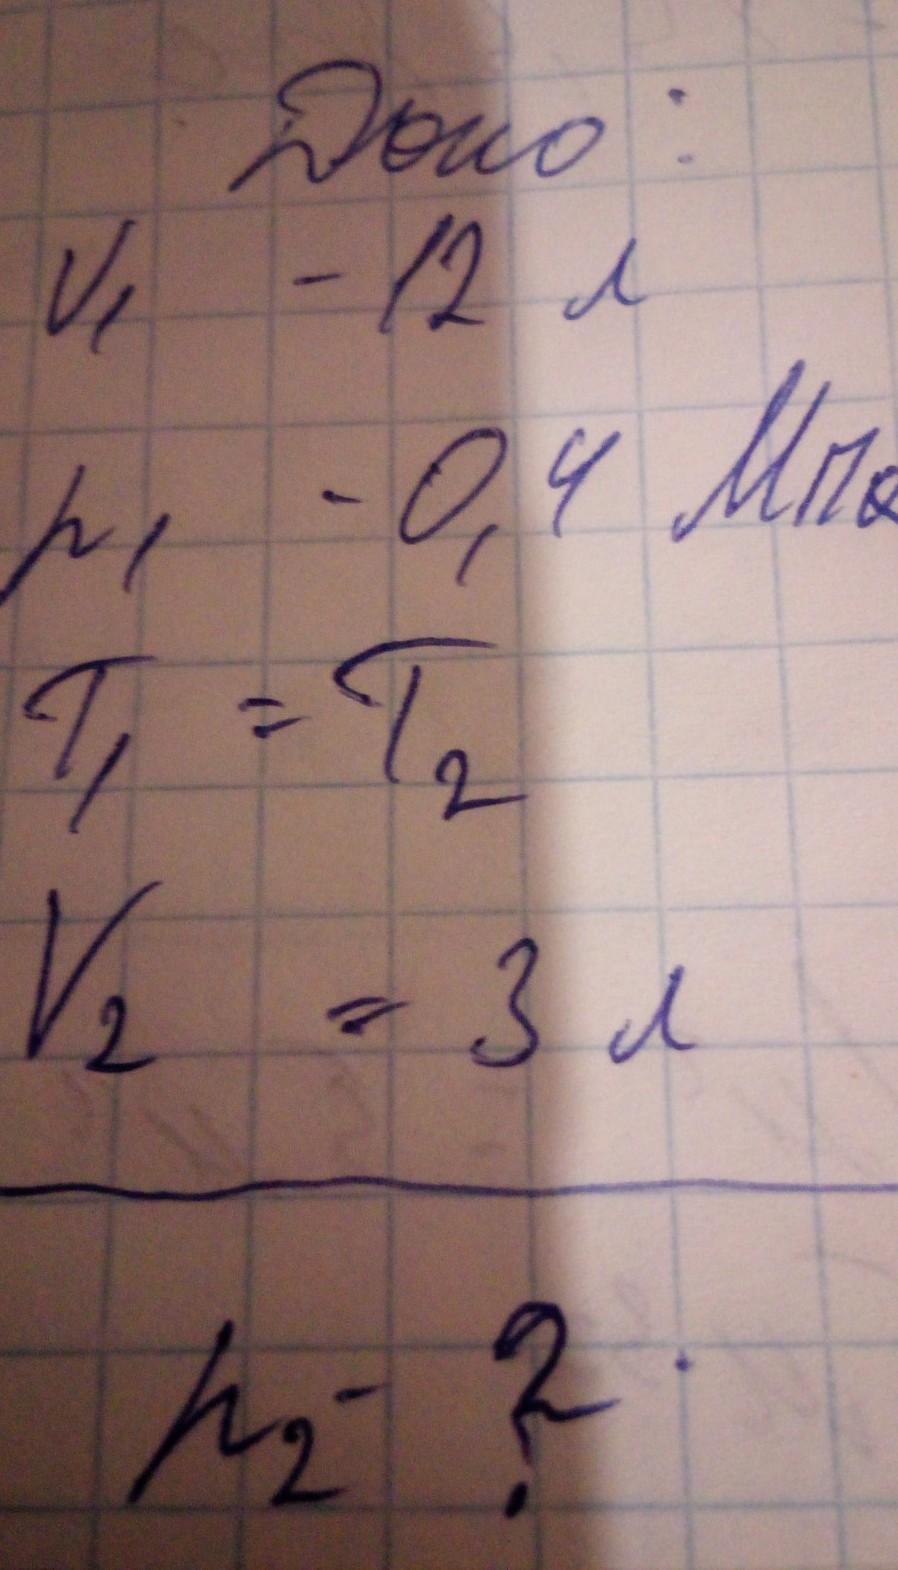 Дано:
V₁ - 12 л
p₁ - 0,4 МПа
T₁ = T₂
V₂ = 3 л
p₂ - ?